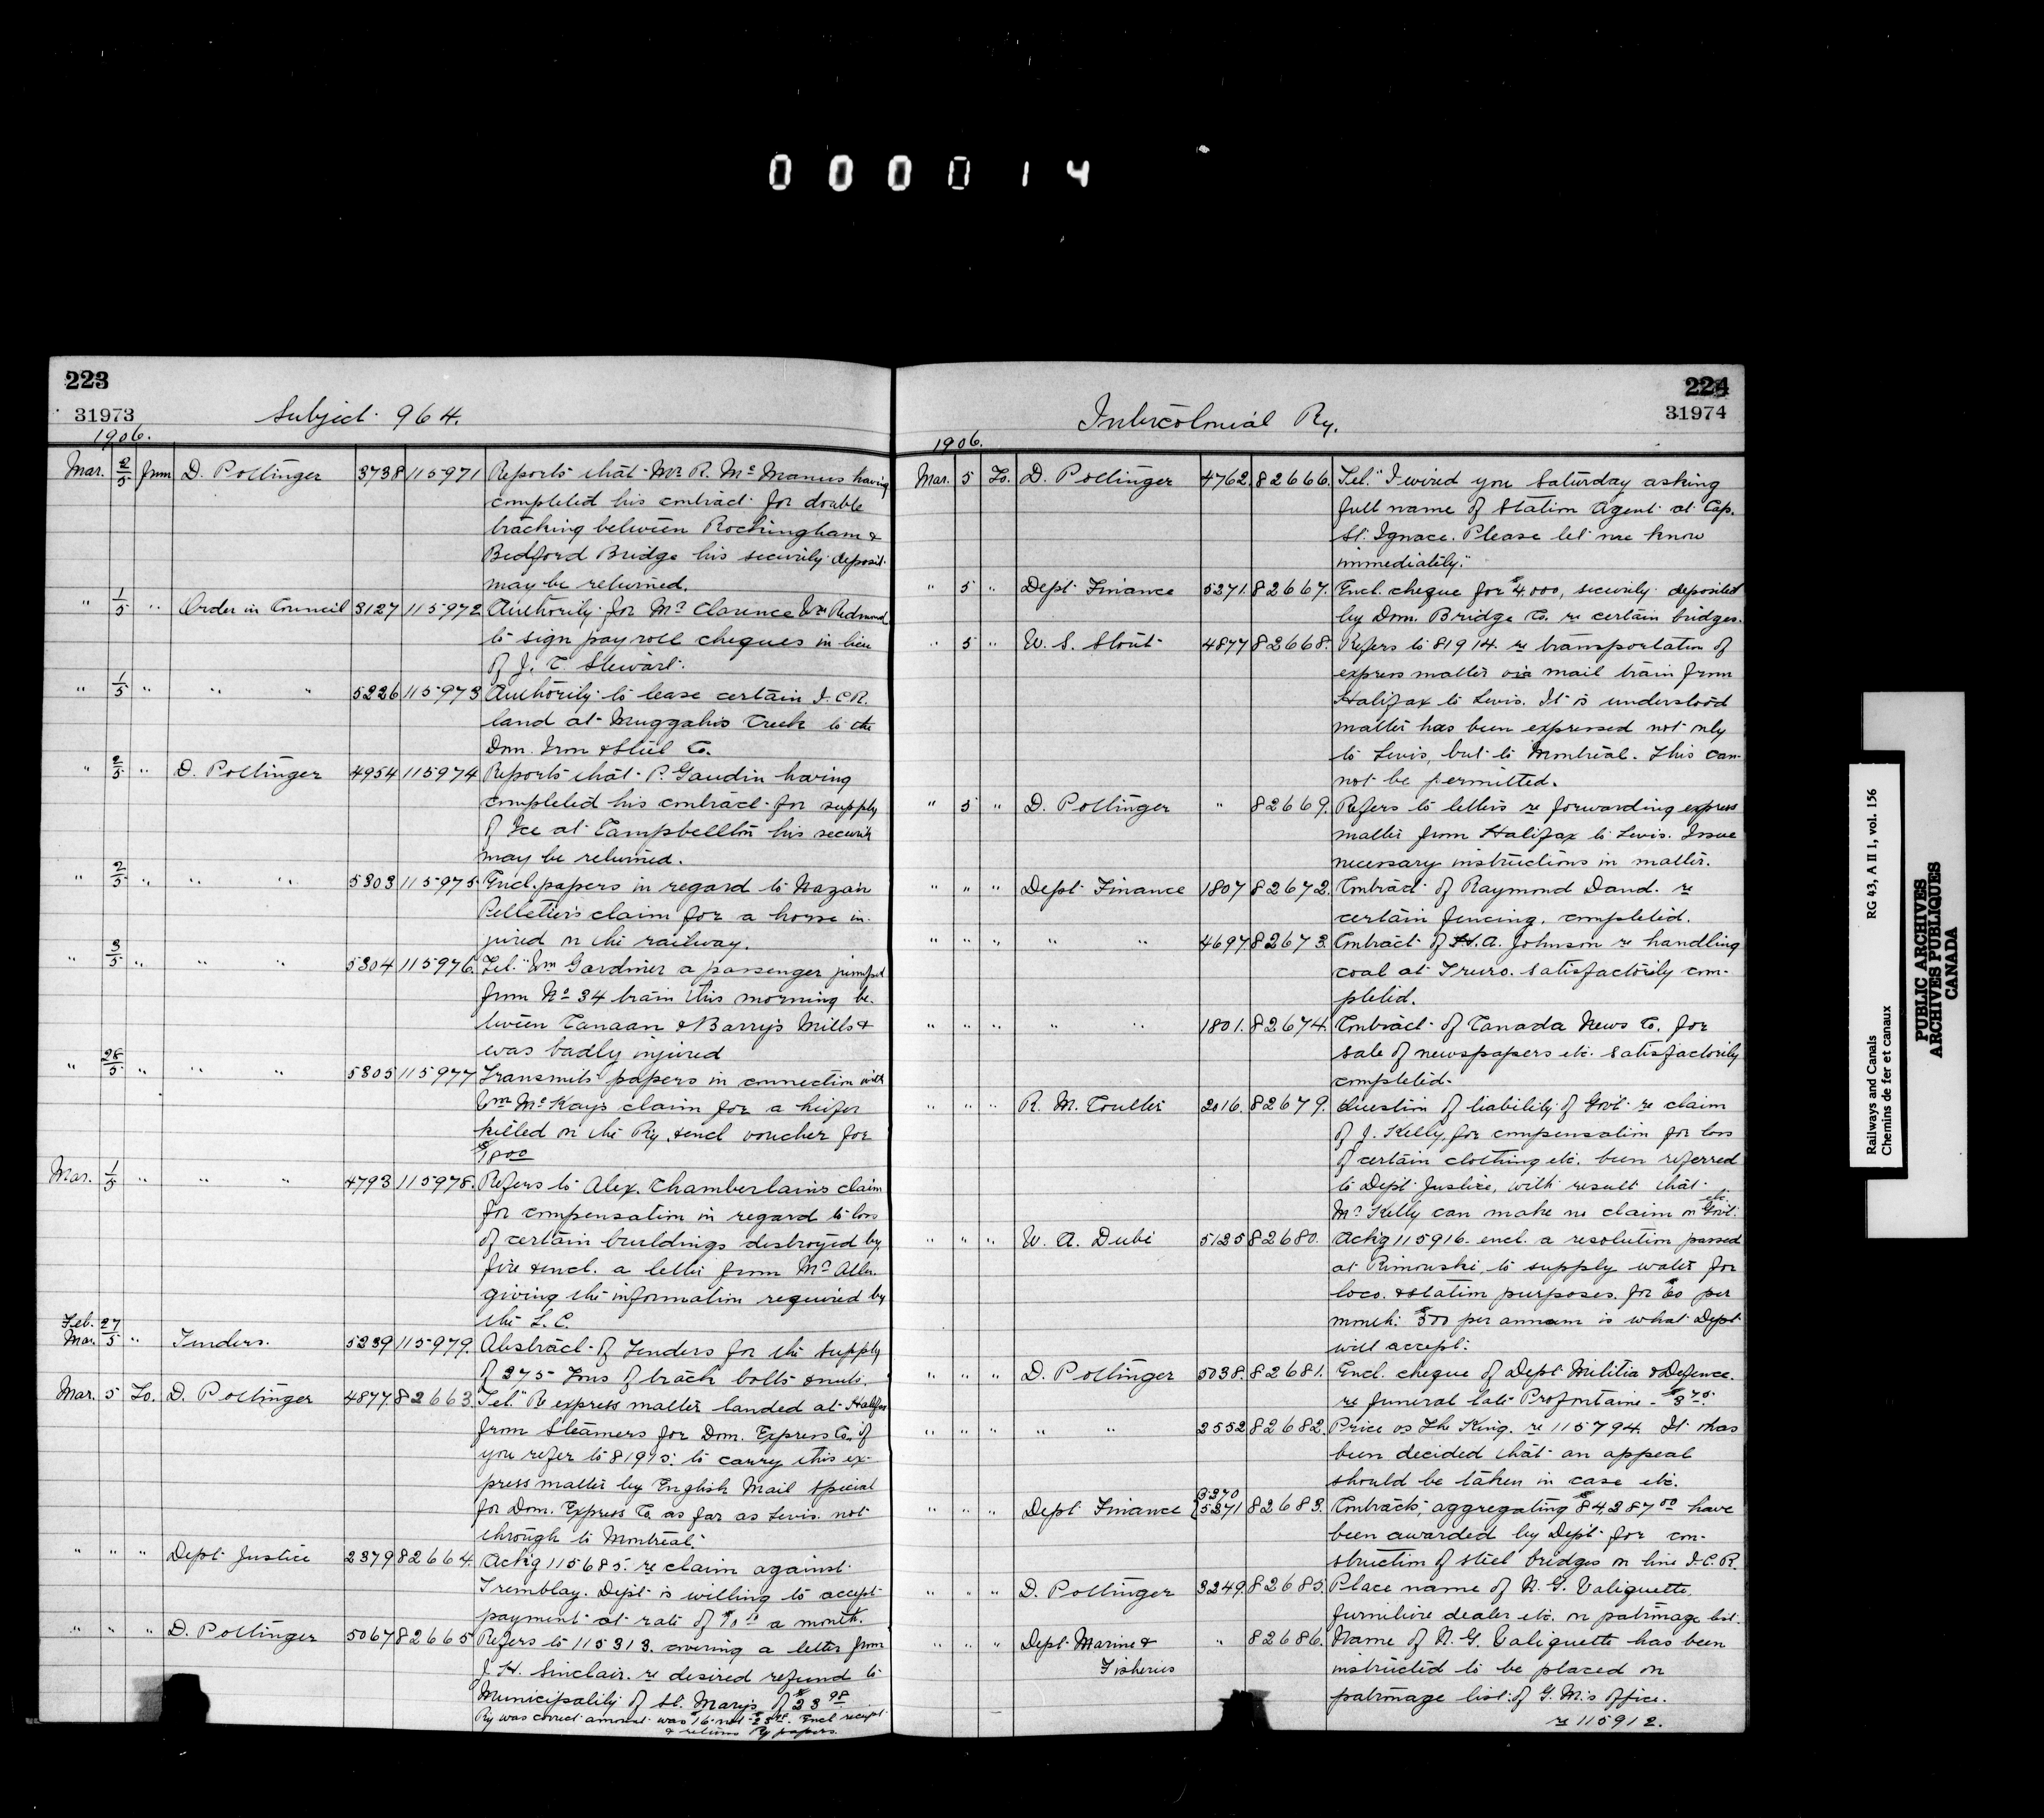 000014
223
31973
Subject 964.
1906.
Mar. 2/5 from D. Pottinger 3738 115971 Reports that Mr R. Mc Manus having
completed his contract for double
tracking between Rockingham &
Bedford Bridge his security deposit
may be returned.
" 1/5 " Order in Council 3127 115972 Authority for Mr Clarence Wm Redmond
to sign pay roll cheques in lieu
of J. C. Stewart.
" 1/5 " " " 5226 115973 Authority to lease certain I.C.R.
land at Muggahs Creek to the
Dom. Iron & Steel Co.
" 2/5 " D. Pottinger 4954 115974 Reports that P. Gaudin having
completed his contract for supply
of Ice at Campbellton his security
may be returned.
" 2/5 " " " 5303 115975 Encl. papers in regard to Nazan
Pelletier's claim for a horse in-
jured on the railway.
" 3/5 " " " 5304 115976 Tel. "Wm Gardiner a passenger jumped
from No 34 train this morning be-
tween Canaan & Barry's Mills &
was badly injured
" 28/5 " " " 5305 115977 Transmits papers in connection with
Wm Mc Kay's claim for a heifer
killed on the Ry. & encl voucher for
$18 00
Mar. 1/5 " " " 4793 115978. Refers to Alex. Chamberlain's claim
for compensation in regard to loss
of certain buildings destroyed by
fire & encl. a letter from Mr
giving the information required by
the L. C.
Feb. 27
Mar. 5 " Tenders. 5239 115979. Abstract of Tenders for the supply
of 375 Tons of track bolts & nuts.
Mar. 5 To. D. Pottinger 4877 82663. Tel. "Re express matter landed at Halifax
from Steamers for Dom. Express Co. if
you refer to 81975. to carry this ex-
press matter by English Mail special
for Dom. Express Co. as far as Levis. not
through to Montreal."
" " " Dept. Justice 2379 82664. Ackg 115685. re claim against
Tremblay. Dept. is willing to accept
payment at rate of $10 00 a month.
" " " D. Pottinger 5067 82665 Refers to 115313. covering a letter from
J. H. Sinclair. re desired refund to
Municipality of St. Mary's of $23 98
Ry was correct amount was $16 not $23 98. Encl receipt
& returns Ry papers.
224
31974
Intercolonial Ry.
1906.
Mar. 5 To. D. Pottinger 4762. 82666. Tel. "I wired you Saturday asking
full name of Station Agent at Cap.
St. Ignace. Please let me know
immediately."
" 5 " Dept. Finance 5271. 82667. Encl. cheque for $4,000, security deposited
by Dom. Bridge Co. re certain bridges.
" 5 " W. S. Stout 4877 82668. Refers to 81914. re transportation of
express matter via mail train from
Halifax to Levis. It is understood
matter has been expressed not only
to Levis, but to Montreal. This can-
not be permitted.
" 5 " D. Pottinger " 82669. Refers to letters re forwarding express
matter from Halifax to Levis. Issue
necessary instructions in matter.
" " " Dept Finance 1807 82672. Contract of Raymond Dand. re
certain fencing. completed.
" " " " " 4697 82673. Contract of H. A. Johnson re handling
coal at Truro. satisfactorily com-
pleted.
" " " " " 1801. 82674. Contract of Canada News Co. for
sale of newspapers etc. satisfactorily
completed.
" " " R. M. Coulter 2016. 82679. Question of liability of Govt. re claim
of J. Kelly, for compensation for loss
of certain clothing etc. been referred
to Dept. Justice, with result that
Mr Kelly can make no claim on Govt. etc.
" " " W. A. Dubé 5125 82680. Ackg 115916. encl. a resolution passed
at Rimouski, to supply water for
loco. & station purposes. for $60 per
month: $500 per annum is what Dept
will accept.
" " " D. Pottinger 5038. 82681. Encl. cheque of Dept Militia & Defence.
re funeral late Prefontaine - $3 75.
" " " " " 2552 82682. Price vs The King. re 115794. It has
been decided that an appeal
should be taken in case etc.
" " " Dept Finance { 5370 5371 82683. Contracts, aggregating $84,387 00 have
been awarded by Dept for con-
struction of steel bridges on line I.C.R.
" " " D. Pottinger 3249. 82685. Place name of N. G. Valiquette.
furniture dealer etc. on patronage list.
" " " Dept. Marine &
Fisheries " 82686. Name of N. G. Valiquette has been
instructed to be placed on
patronage list. of G. M's office.
re 115912.
Railways and Canals
Chemins de fer et canaux
RG 43, A II 1, vol. 156
PUBLIC ARCHIVES
ARCHIVES PUBLIQUES
CANADA